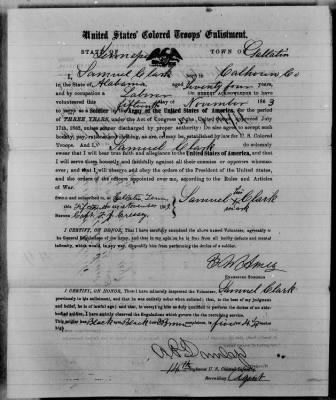 United States' Colored Troops' Enlistment.
STATE OF Tennessee TOWN OF Gallatin
I, Samuel Clark born in Calhoun Co
in the State of Alabama aged Seventy four years,
and by occupation a DO HEREBY ACKNOWLEDGE to have
volunteered this fifteenth day of November 1863
to serve as a Soldier in the Army of the United States of America, for the period
of THREE YEARS, under the Act of Congress of the United States, approved July
17th, 1862, unless sooner discharged by proper authority: Do also agree to accept such
bounty, pay, rations and clothing, as are, or may be, established by law for U. S. Colored
Troops. And I, Samuel Clark do solemnly
swear that I will bear true faith and allegiance to the United States of America, and that
I will serve them honestly and faithfully against all their enemies or opposers whomso-
ever; and that I will observe and obey the orders of the President of the United States,
and the orders of the officers appointed over me, according to the Rules and Articles
of War.
Sworn and subscribed to, at Gallatin Tenn
this fifteenth day of November 1863
BEFORE Capt.
Samuel his X mark Clark
I CERTIFY, ON HONOR, That I have carefully examined the above named Volunteer, agreeably to
the General Regulations of the Army, and that in my opinion he is free from all bodily defects and mental
infirmity, which would, in any way, disqualify him from performing the duties of a soldier.
EXAMINING SURGEON
I CERTIFY, ON HONOR, That I have minutely inspected the Volunteer, Samuel Clark
previously to his enlistment, and that he was entirely sober when enlisted; that, to the best of my judgment
and belief, he is of lawful age; and that, in accepting him as duly qualified to perform the duties of an able-
bodied soldier, I have strictly observed the Regulations which govern the recruiting service.
This soldier has Black eyes, Black hair, complexion, is five feet
high.
14th Regiment U. S. Colored
Recruiting